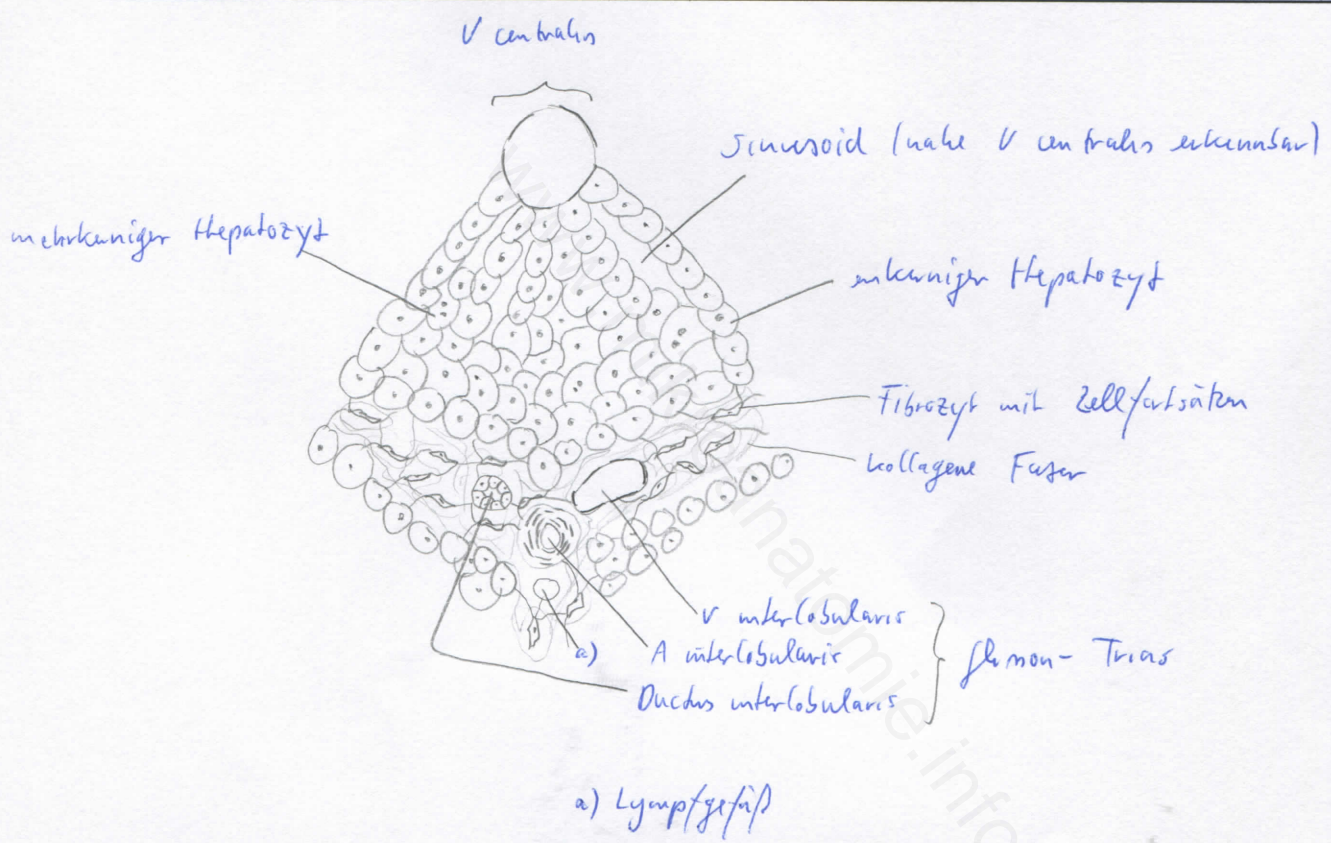 V centralis
Sinusoid (nahe V centralis erkennbar)
mehrkerniger Hepatozyt
einkerniger Hepatozyt
Fibrozyt mit Zellfortsätzen
kollagene Faser
V interlobularis
a) A interlobularis
Glisson-Trias
Ductus interlobularis
a) Lympfgefäß
anatomie.info